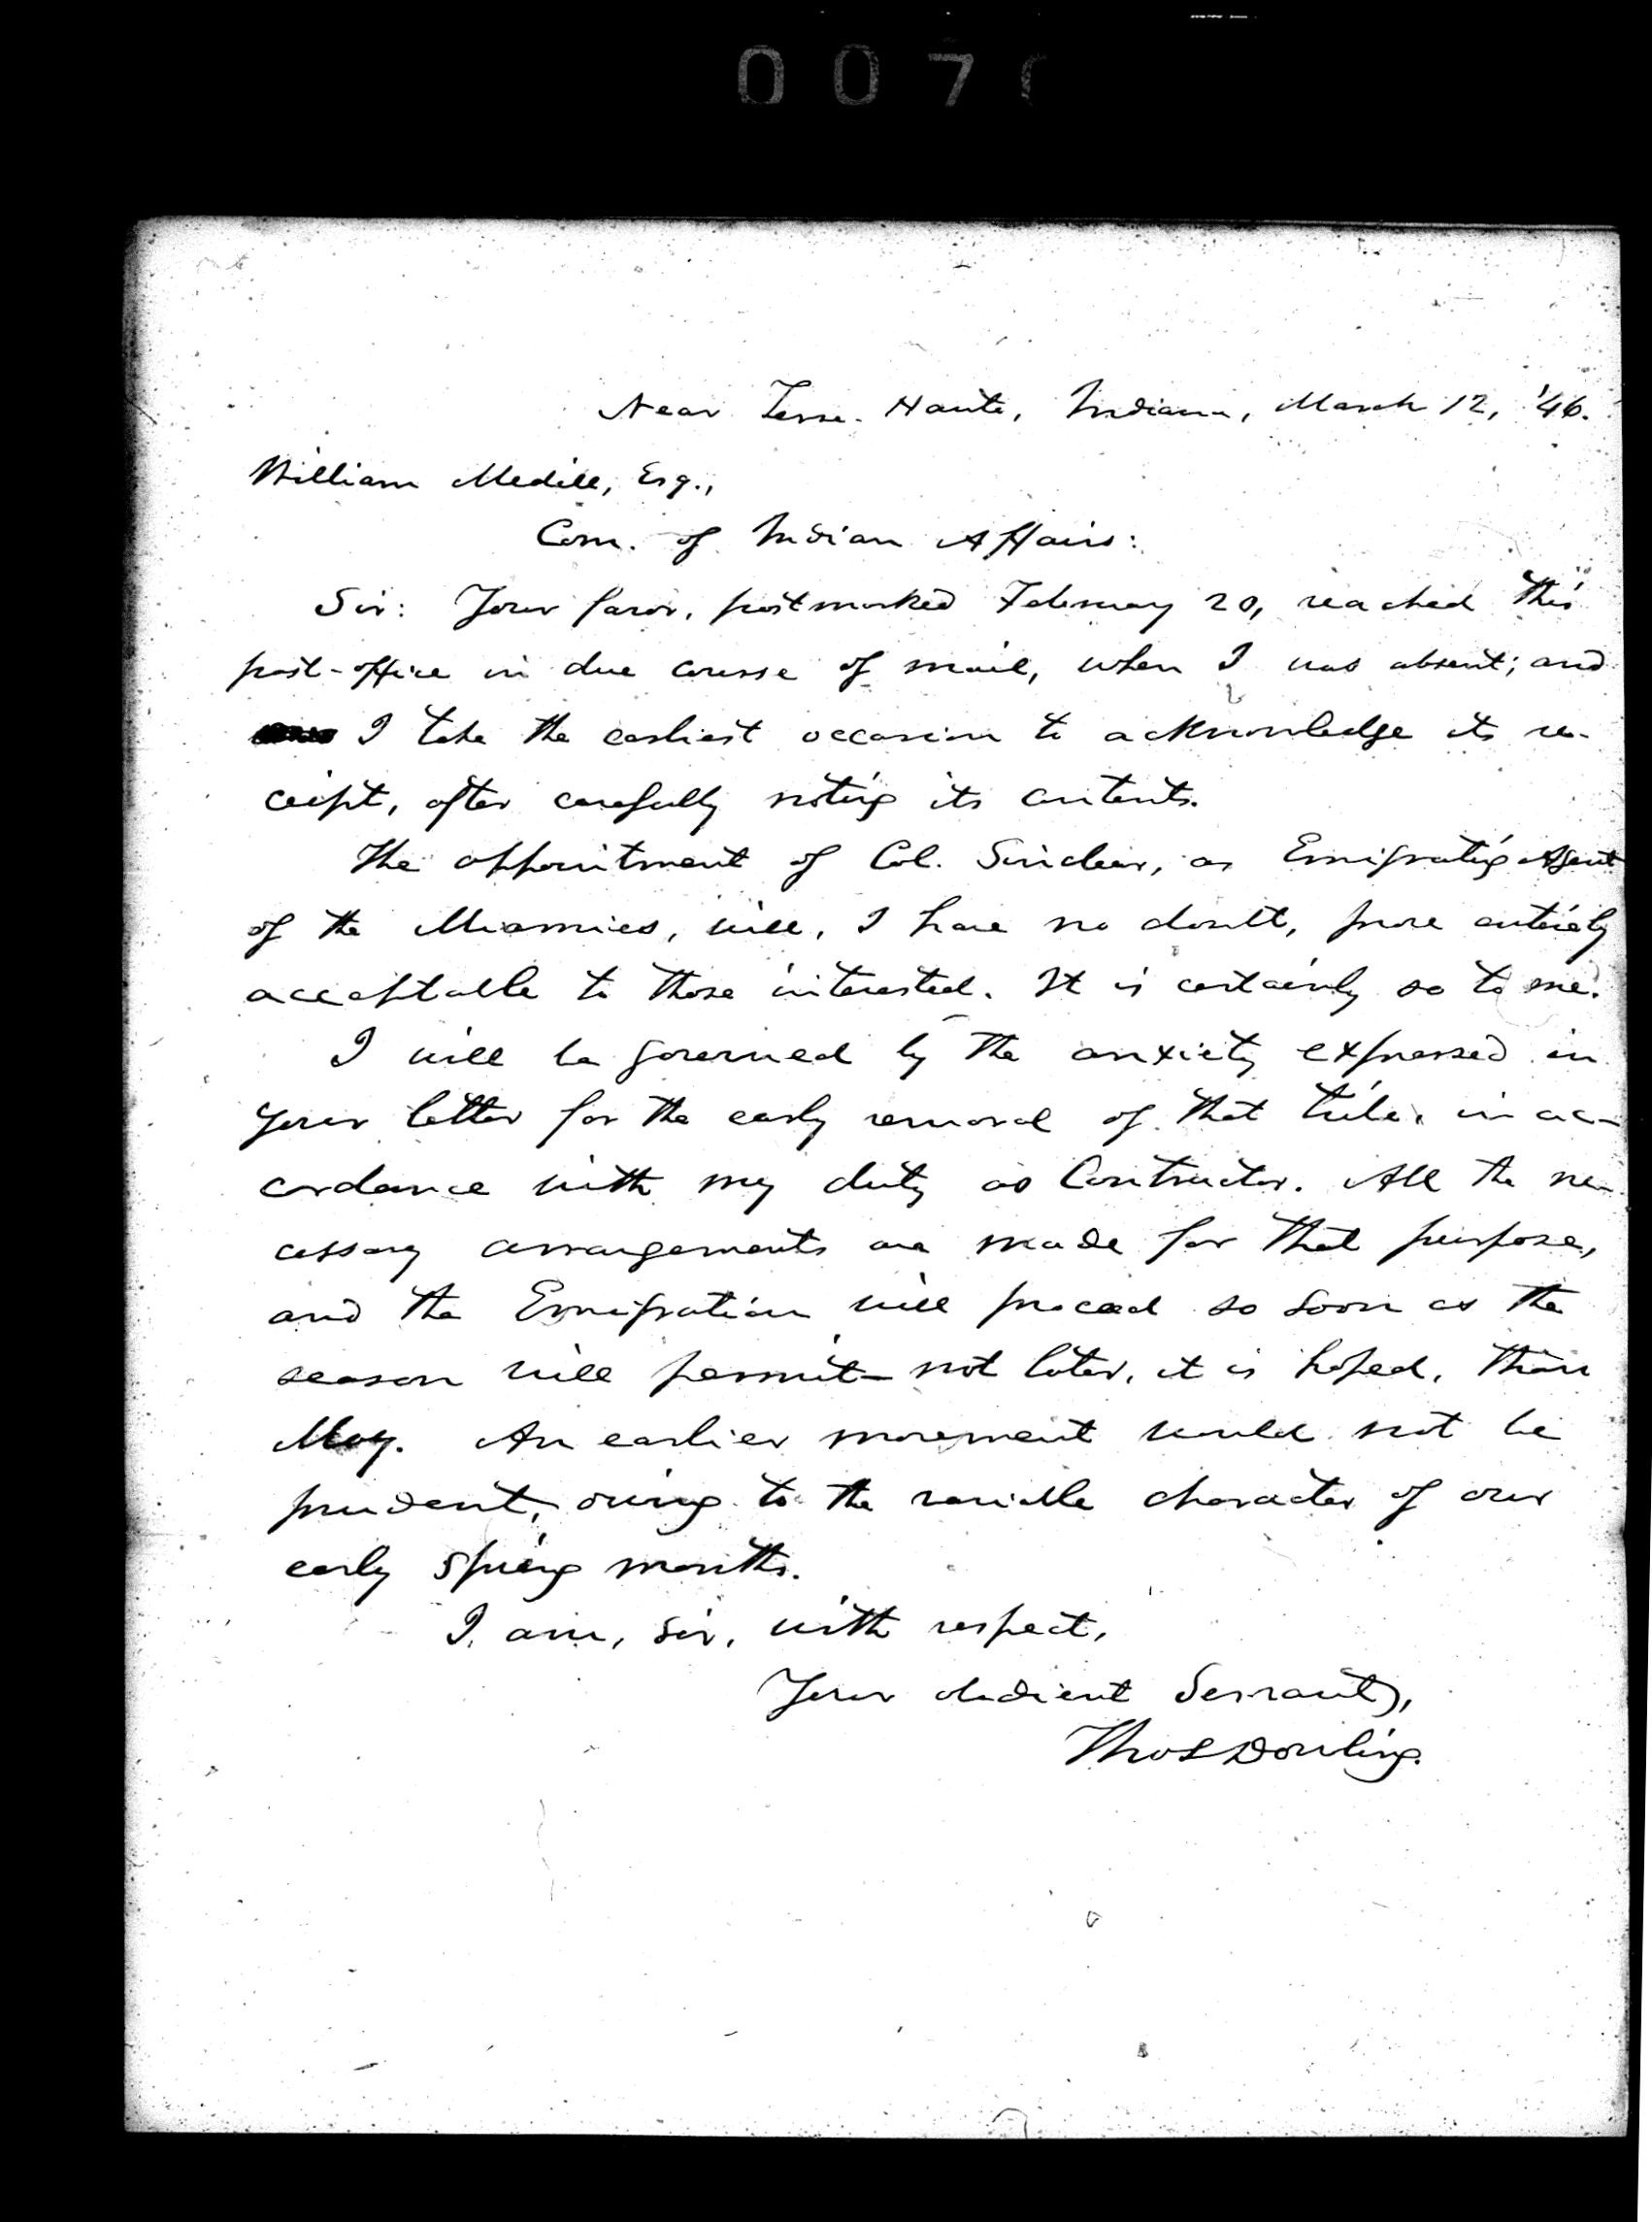 007
Near Terre-Haute, Indiana, March 12, '46.
William Medill, Esq.,
Com. of Indian Affairs:
Sir: Your favor, postmarked February 20, reached this
post-office in due course of mail, when I was absent; and
I take the earliest occasion to acknowledge its re-
ceipt, after carefully noting its contents.
The appointment of Col. Sinclear, as Emigrating Agent
of the Miamies, will, I have no doubt, prove entirely
acceptable to those interested. It is certainly so to me.
I will be governed by the anxiety expressed in
your letter for the early removal of that tribe, in ac-
cordance with my duty as Contractor. All the ne-
cessary arrangements are made for that purpose,
and the Emigration will proceed so soon as the
season will permit—not later, it is hoped, than
May. An earlier movement would not be
prudent, owing to the variable character of our
early spring months.
I am, sir, with respect,
Your obedient Servant,
Thos Dowling.